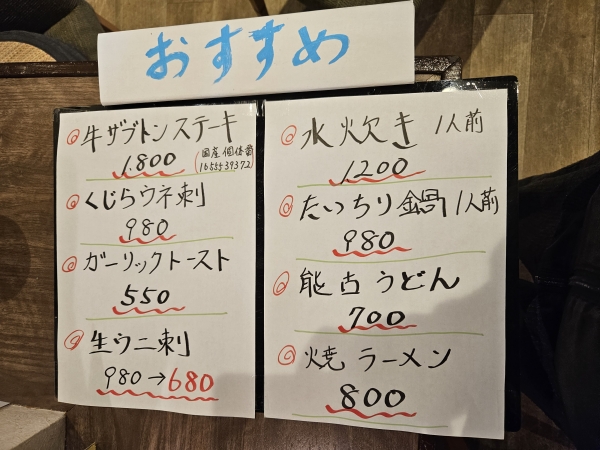 おすすめ
牛ザブトンステーキ
1.800
(国産 個体番
1655539372)
くじらウネ刺
980
ガーリックトースト
550
生ウニ刺
980→680
水炊き 1人前
1200
たいちり鍋 1人前
980
能古うどん
700
焼ラーメン
800